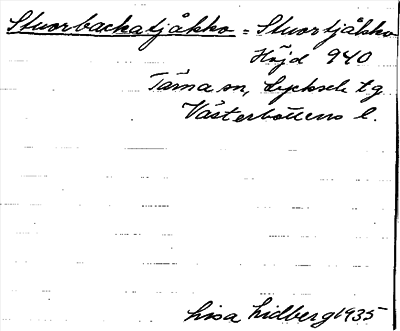 Stuorbackatjåkko = Stuortjåkko
Höjd 940
Tärna sn, Lycksele tg
Västerbottens l.
Lisa Lidberg 1935